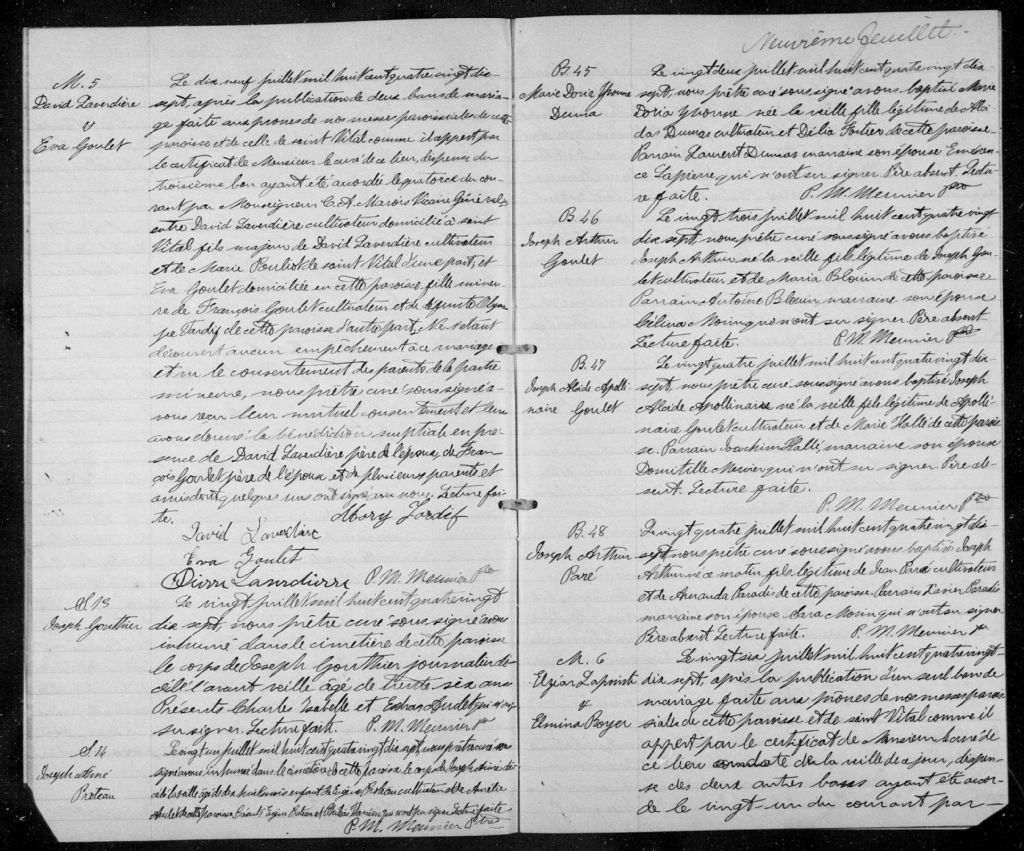 M. 5
David Laverdière
&
Eva Goulet
Le dix neuf juillet mil huit cent quatre vingt dix
sept, après la publication de deux bans de maria-
ge faite aux prones de nos messes paroissiales de cette
paroisse et de celle de saint Vital comme il appert par
le certificat de Monsieur le curé de ce lieu, dispense du
troisième ban ayant été accordée le quatorze du cou-
rant par Monseigneur C. A. Marois Vicaire Général,
entre David Laverdière cultivateur domicilié à saint
Vital, fils majeur de David Laverdière cultivateur
et de Marie Pouliot de saint Vital d'une part, et
Eva Goulet domiciliée en cette paroisse, fille mineu-
re de François Goulet cultivateur et de défunte Olym-
pe Tardif de cette paroisse d'autre part. Ne s'étant
découvert aucun empêchement à ce mariage
et vu le consentement des parents de la partie
mineure, nous prêtre curé soussigné a-
vons reçu leur mutuel consentement et leur
avons donné la bénédiction nuptiale en pré-
sence de David Laverdière père de l'époux, de Fran
çois Goulet père de l'épouse et de plusieurs parents et
amis dont quelques uns ont signé avec nous. Lecture fai-
te.
David Laverdiere
Eva Goulet
P. M. Meunier Ptre
S 13
Joseph Gouthier
Le vingt juillet mil huit cent quatre vingt
dix sept, nous prêtre curé soussigné avons
inhumé dans le cimetière de cette paroisse
le corps de Joseph Gouthier journalier dé-
cédé l'avant veille âgé de trente six ans
Présents Charles Isabelle et Esdras Audet qui n'ont
su signer. Lecture faite. P. M. Meunier Ptre
S 14
Joseph Aimé
Proteau
Le vingt un juillet mil huit cent quatre vingt dix sept, nous prêtre curé sous-
signé avons inhumé dans le cimetière de cette paroisse le corps de Joseph Aimé dé-
cédé la veille âgé de enfant de Eugène Proteau cultivateur et de Aurélie
Audet de cette paroisse. Présents Eugène Proteau et qui n'ont pu signer. Lecture faite.
P. M. Meunier Ptre
Neuvième feuillet.
B. 45
Marie Doria Yvonne
Duma
Le vingt deux juillet mil huit cent quatre vingt dix
sept, nous prêtre curé soussigné avons baptisé Marie
Doria Yvonne née la veille fille légitime de Alci
das Dumas cultivateur et Délia Fortier de cette paroisse.
Parrain Laurent Dumas marraine son épouse Eméren-
ce Lapierre qui n'ont su signer. Père absent. Lectu-
re faite. P. M. Meunier ptre
B. 46
Joseph Arthur
Goulet
Le vingt trois juillet mil huit cent quatre vingt
dix sept, nous prêtre curé soussigné avons baptisé
Joseph Arthur né la veille fils légitime de Joseph Gou-
let cultivateur et de Maria Blouin de cette paroisse
Parrain, Antoine Blouin, marraine son épouse
Célina Morin qui n'ont su signer. Père absent
Lecture faite. P. M. Meunier Ptre
B. 47
Joseph Alcide Apolli
naire Goulet
Le vingt quatre juillet mil huit cent quatre vingt dix
sept, nous prêtre curé soussigné avons baptisé Joseph
Alcide Apollinaire né la veille fils légitime de Apolli-
naire Goulet cultivateur et de Marie Hallé de cette parois-
se. Parrain Joachim Hallé, marraine son épouse
Domitille Mercier qui n'ont su signer. Père ab-
sent. Lecture faite.
P. M. Meunier Ptre
B. 48
Joseph Arthur
Paré
Le vingt quatre juillet mil huit cent quatre vingt dix
sept nous prêtre curé soussigné avons baptisé Joseph
Arthur né ce matin, fils légitime de Jean Paré cultivateur
et de Amanda Paradis de cette paroisse. Parrain Xavier Paradis
marraine son épouse Morin qui n'ont su signer
Père absent. Lecture faite. P. M. Meunier Ptre
M. 6
Elzéar Lapointe
&
Elmina Boyer
Le vingt six juillet mil huit cent quatre vingt-
dix sept, après la publication d'un seul ban de
mariage faite aux prones de nos messes parois-
siales de cette paroisse et de saint Vital comme il
appert par le certificat de Monsieur le curé de
ce lieu en date de la veille de ce jour, dispen-
se des deux autres bans ayant été accor-
dé le vingt-un du courant par